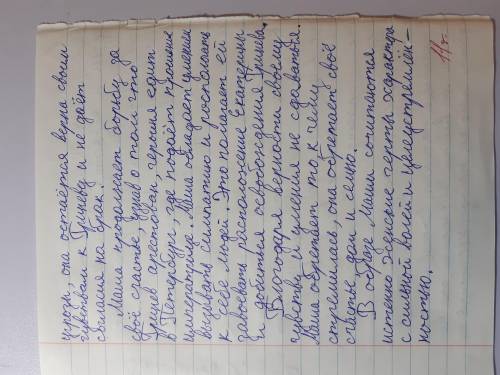 угрозы, она остаётся верна своим
чувствам к Гринёву и не даёт
согласия на брак.
Маша продолжает борьбу за
своё счастье, узнав о том что
Гринёв арестован, героиня едит
в Петербург, где подаёт прошение
императрице. Маша обладает умением
вызывать симпатию и распологать
к себе людей. Это помагает ей
завоевать расположение Екатерины
II и добиться освобождения Гринёва.
Благодаря верности своему
чувству и умения не сдаваться
Маша обретает то, к чему
стремилась, она обретает своё
счастье, дом и семью.
В образе Маши сочитаются
истено женские черты характера
с сильной волей и целеустремлён-
ностью.